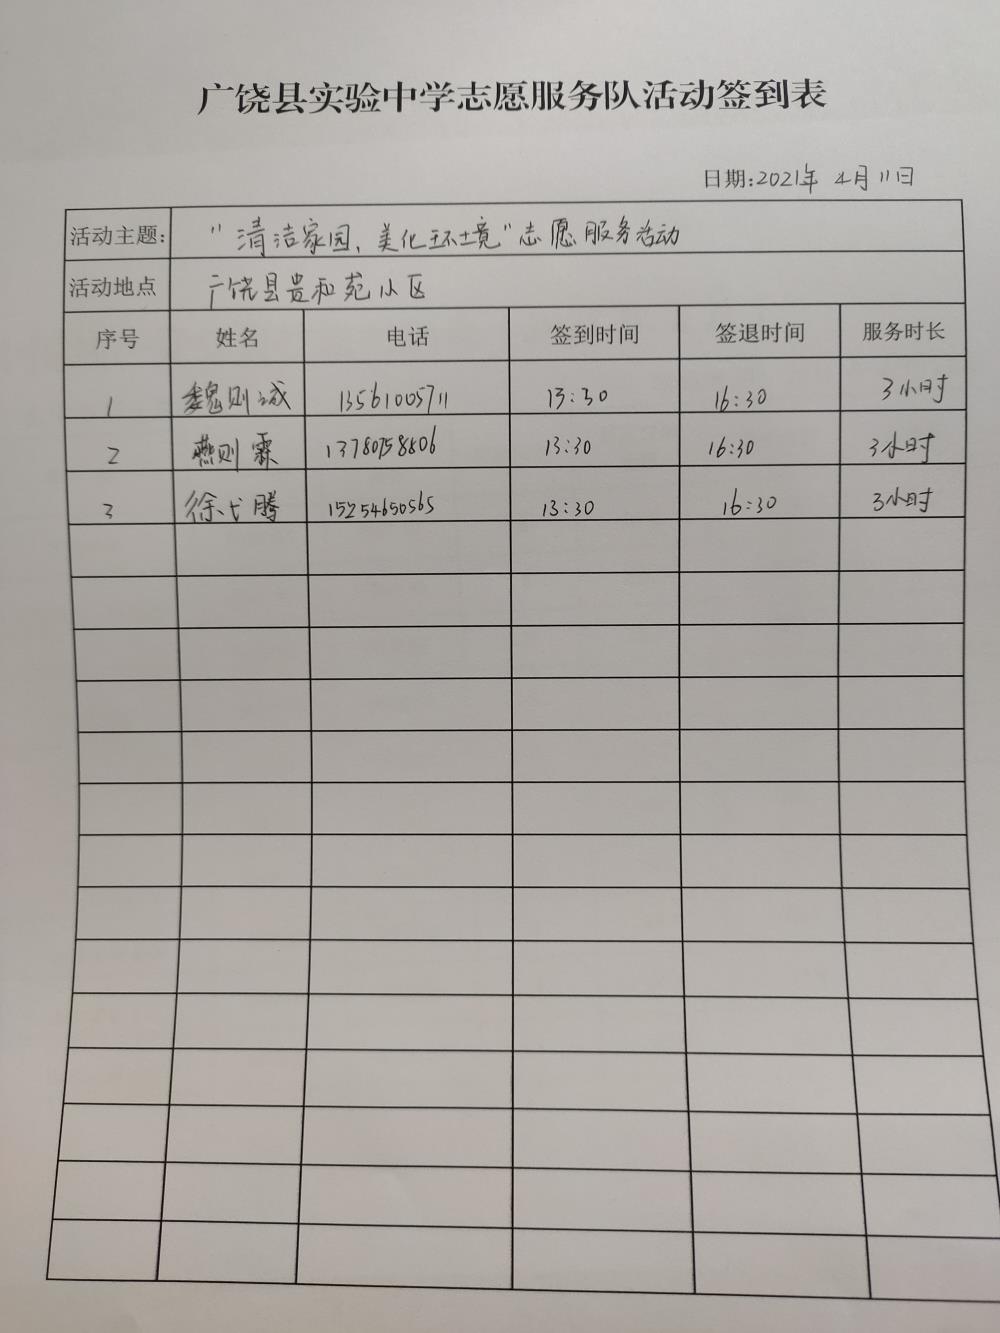 广饶县实验中学志愿服务队活动签到表
日期:2021年 4月11日
活动主题: "清洁家园、美化环境"志愿服务活动
活动地点 广饶县贵和苑小区
序号 姓名 电话 签到时间 签退时间 服务时长
1 魏则诚 13561005711 13:30 16:30 3小时
2 燕则霖 13780758806 13:30 16:30 3小时
3 徐弋腾 15254650565 13:30 16:30 3小时